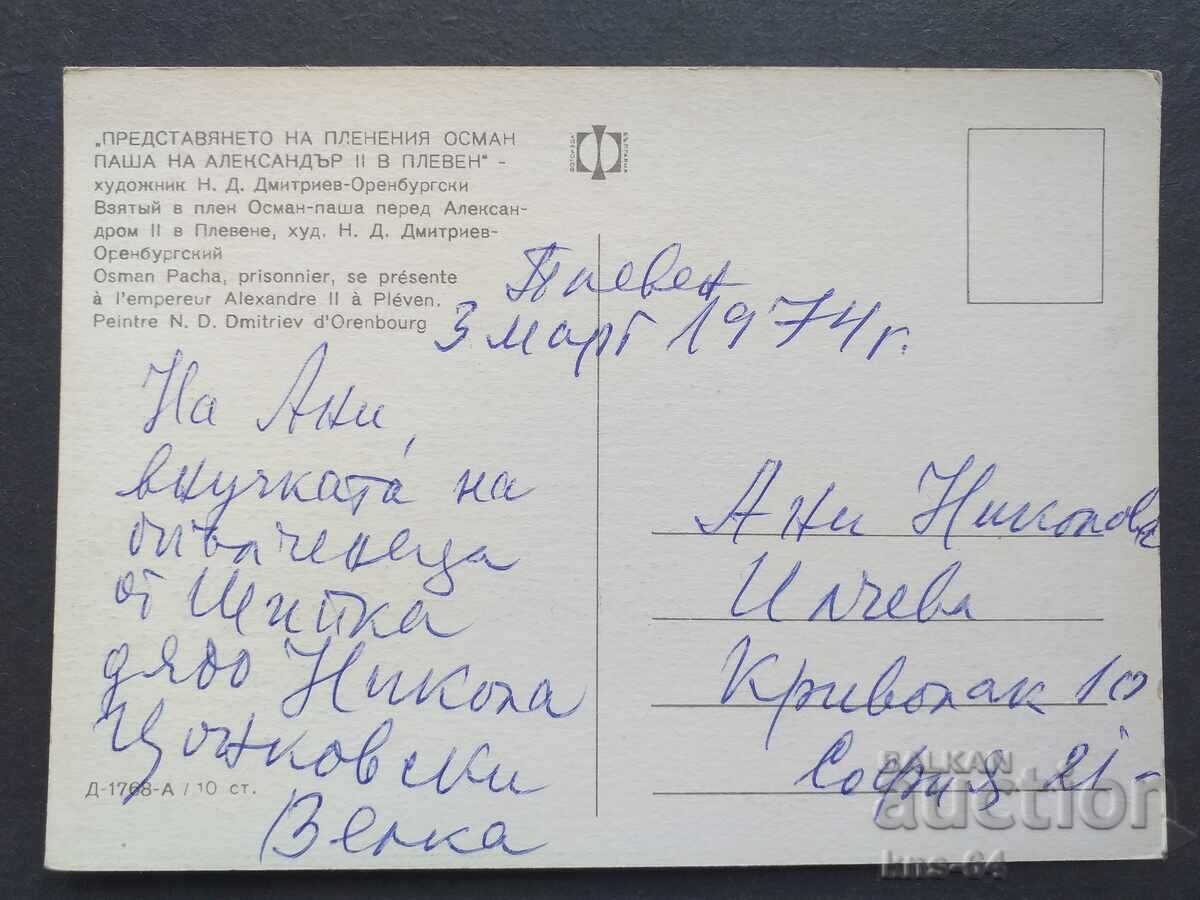 „ПРЕДСТАВЯНЕТО НА ПЛЕНЕНИЯ ОСМАН
ПАША НА АЛЕКСАНДЪР II В ПЛЕВЕН" -
художник Н. Д. Дмитриев-Оренбургски
Взятый в плен Осман-паша перед Алексан-
дром II в Плевене, худ. Н. Д. Дмитриев-
Оренбургский
Osman Pacha, prisonnier, se présente
à l'empereur Alexandre II à Pléven.
Peintre N. D. Dmitriev d'Orenbourg
Плевен
3 март 1974 г.
На Ани,
внучката на
опълченеца
от Шипка
дядо Никола
Цонковски
Венка
Д-1768-А / 10 ст.
Ани Николова
Илчева
Криволак 10
София 21-
BALKAN
auction
kns-64